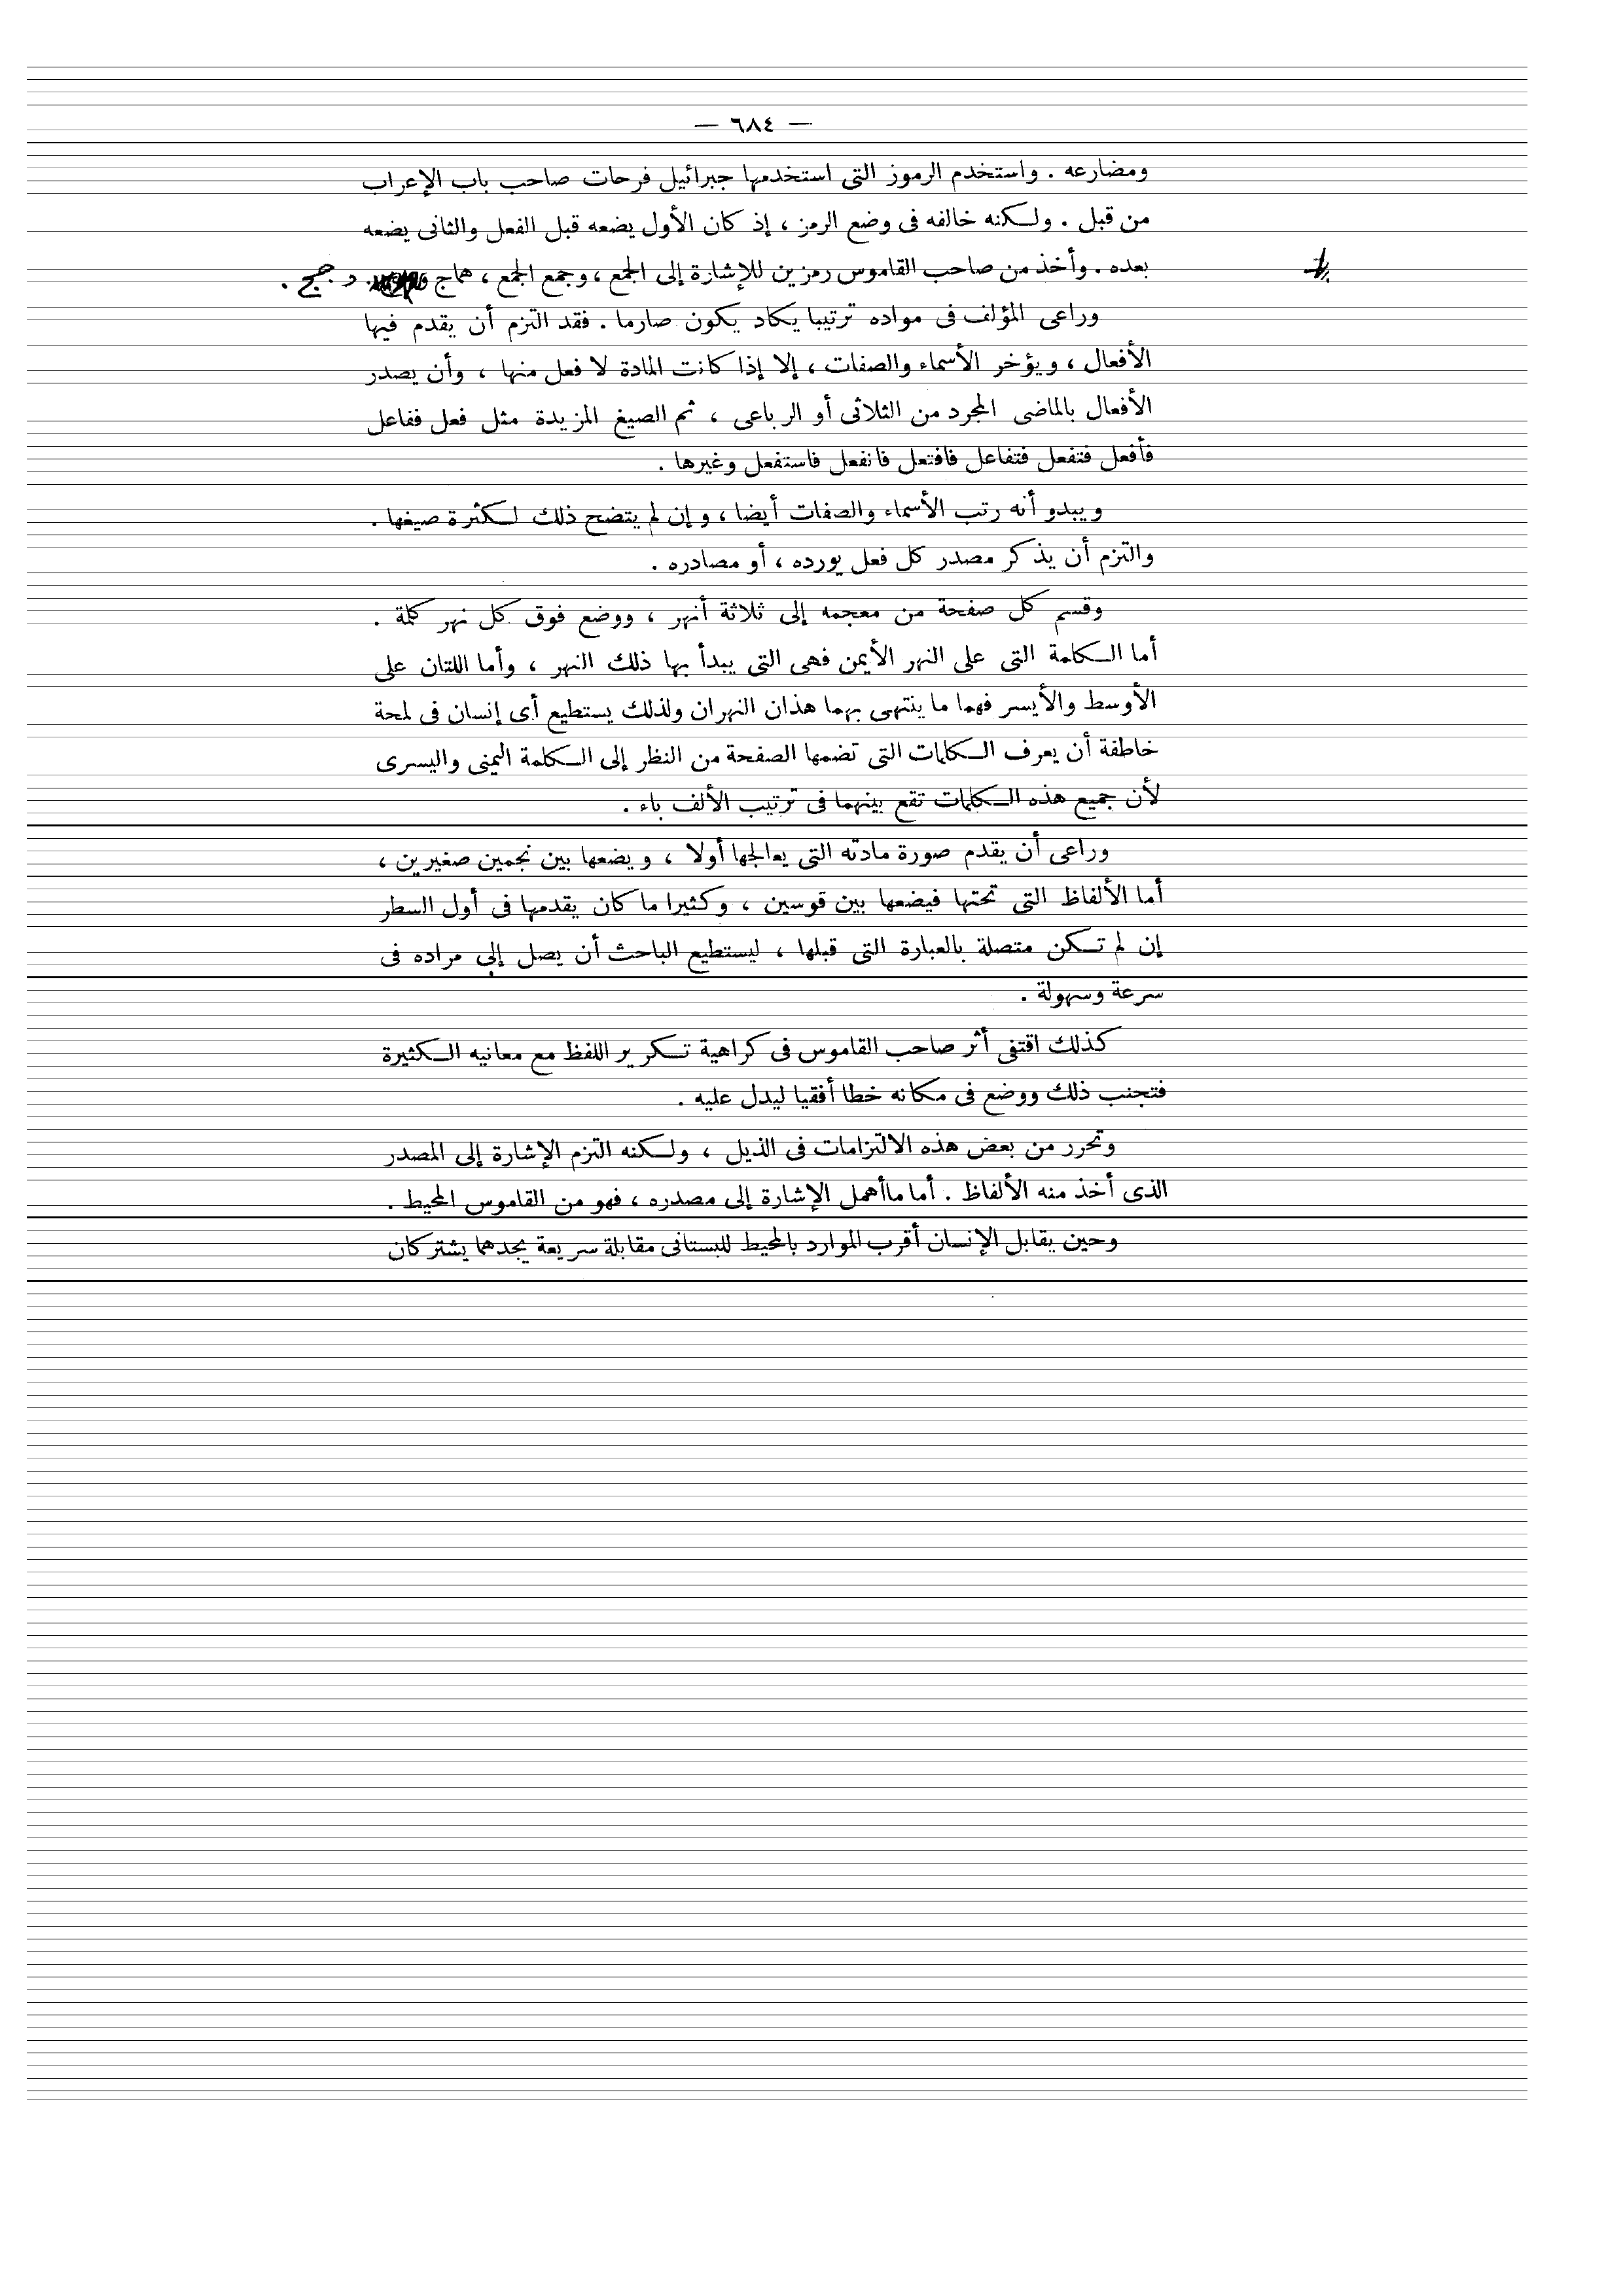 — ٦٨٤ —
ومضارعه . واستخدم الرموز التى استخدمها جبرائيل فرحات صاحب باب الإعراب
من قبل . ولكنه خالفه فى وضع الرمز ، إذ كان الأول يضعه قبل الفعل والثانى يضعه
بعده . وأخذ من صاحب القاموس رمزين للإشارة إلى الجمع ، وجمع الجمع ، هما ج و جج .
وراعى المؤلف فى مواده ترتيبا يكاد يكون صارما . فقد التزم أن يقدم فيها
الأفعال ، ويؤخر الأسماء والصفات ، إلا إذا كانت المادة لا فعل منها ، وأن يصدر
الأفعال بالماضى المجرد من الثلاثى أو الرباعى ، ثم الصيغ المزيدة مثل فعل ففاعل
فأفعل فتفعل فتفاعل فافتعل فانفعل فاستفعل وغيرها .
ويبدو أنه رتب الأسماء والصفات أيضا ، وإن لم يتضح ذلك لكثرة صيغها .
والتزم أن يذكر مصدر كل فعل يورده ، أو مصادره .
وقسم كل صفحة من معجمه إلى ثلاثة أنهر ، ووضع فوق كل نهر كلمة .
أما الكلمة التى على النهر الأيمن فهى التى يبدأ بها ذلك النهر ، وأما اللتان على
الأوسط والأيسر فهما ما ينتهى بهما هذان النهران ولذلك يستطيع أى إنسان فى لمحة
خاطفة أن يعرف الكلمات التى تضمها الصفحة من النظر إلى الكلمة اليمنى واليسرى
لأن جميع هذه الكلمات تقع بينهما فى ترتيب الألف باء .
وراعى أن يقدم صورة مادته التى يعالجها أولا ، ويضعها بين نجمين صغيرين ،
أما الألفاظ التى تحتها فيضعها بين قوسين ، وكثيرا ما كان يقدمها فى أول السطر
إن لم تكن متصلة بالعبارة التى قبلها ، ليستطيع الباحث أن يصل إلى مراده فى
سرعة وسهولة .
كذلك اقتفى أثر صاحب القاموس فى كراهية تكرير اللفظ مع معانيه الكثيرة
فتجنب ذلك ووضع فى مكانه خطا أفقيا ليدل عليه .
وتحرر من بعض هذه الالتزامات فى الذيل ، ولكنه التزم الإشارة إلى المصدر
الذى أخذ منه الألفاظ . أما ما أهمل الإشارة إلى مصدره ، فهو من القاموس المحيط .
وحين يقابل الإنسان أقرب الموارد بالمحيط للبستانى مقابلة سريعة يجدهما يشتركان